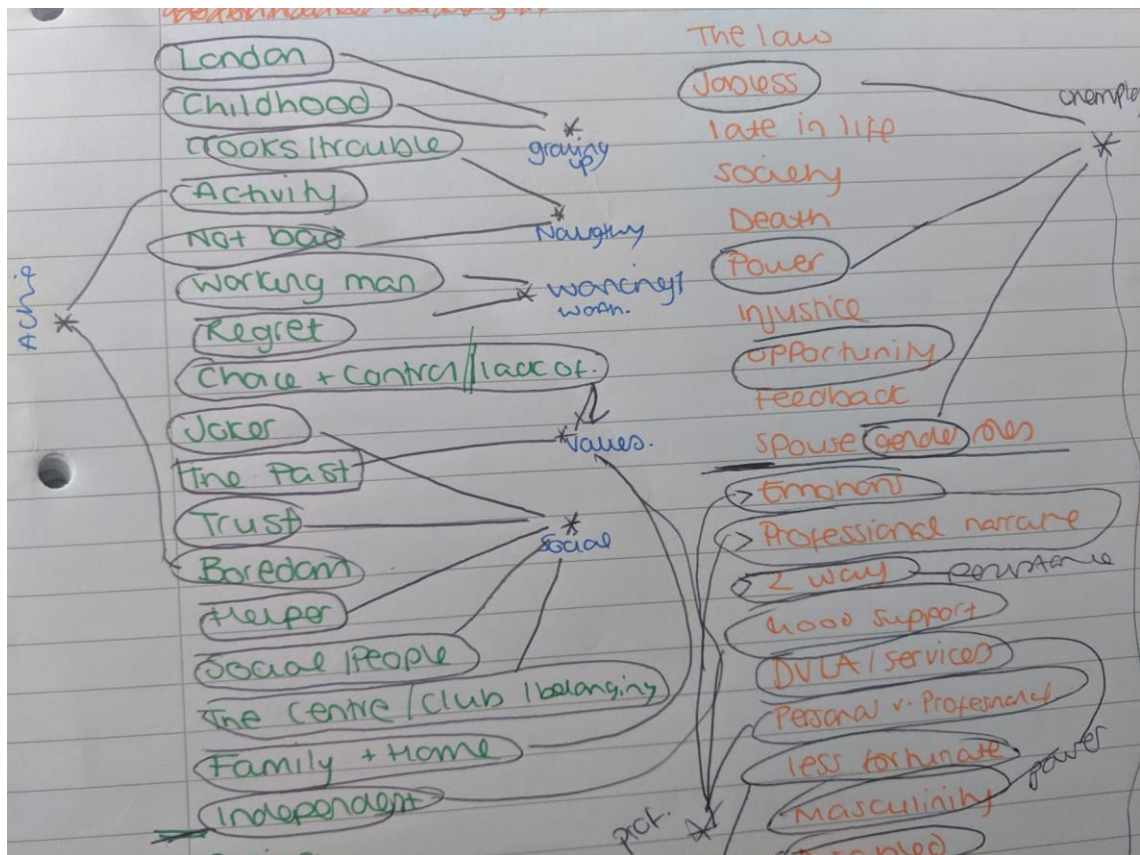 London
Childhood
Crooks/trouble
Activity
Not bad
Working man
Regret
Choice + Control/lack of.
Joker
The Past
Trust
Boredom
Helper
Social/People
The Centre/Club/belonging
Family + Home
Independent
growing up
Naughty
Values.
Social
The law
Jobless
late in life
society
Death
Power
injustice
opportunity
Feedback
spouse gender roles
Emotions
Professional narrative
2 way
Good support
DVLA/services
Personal v. Professional
less fortunate
power
Masculinity